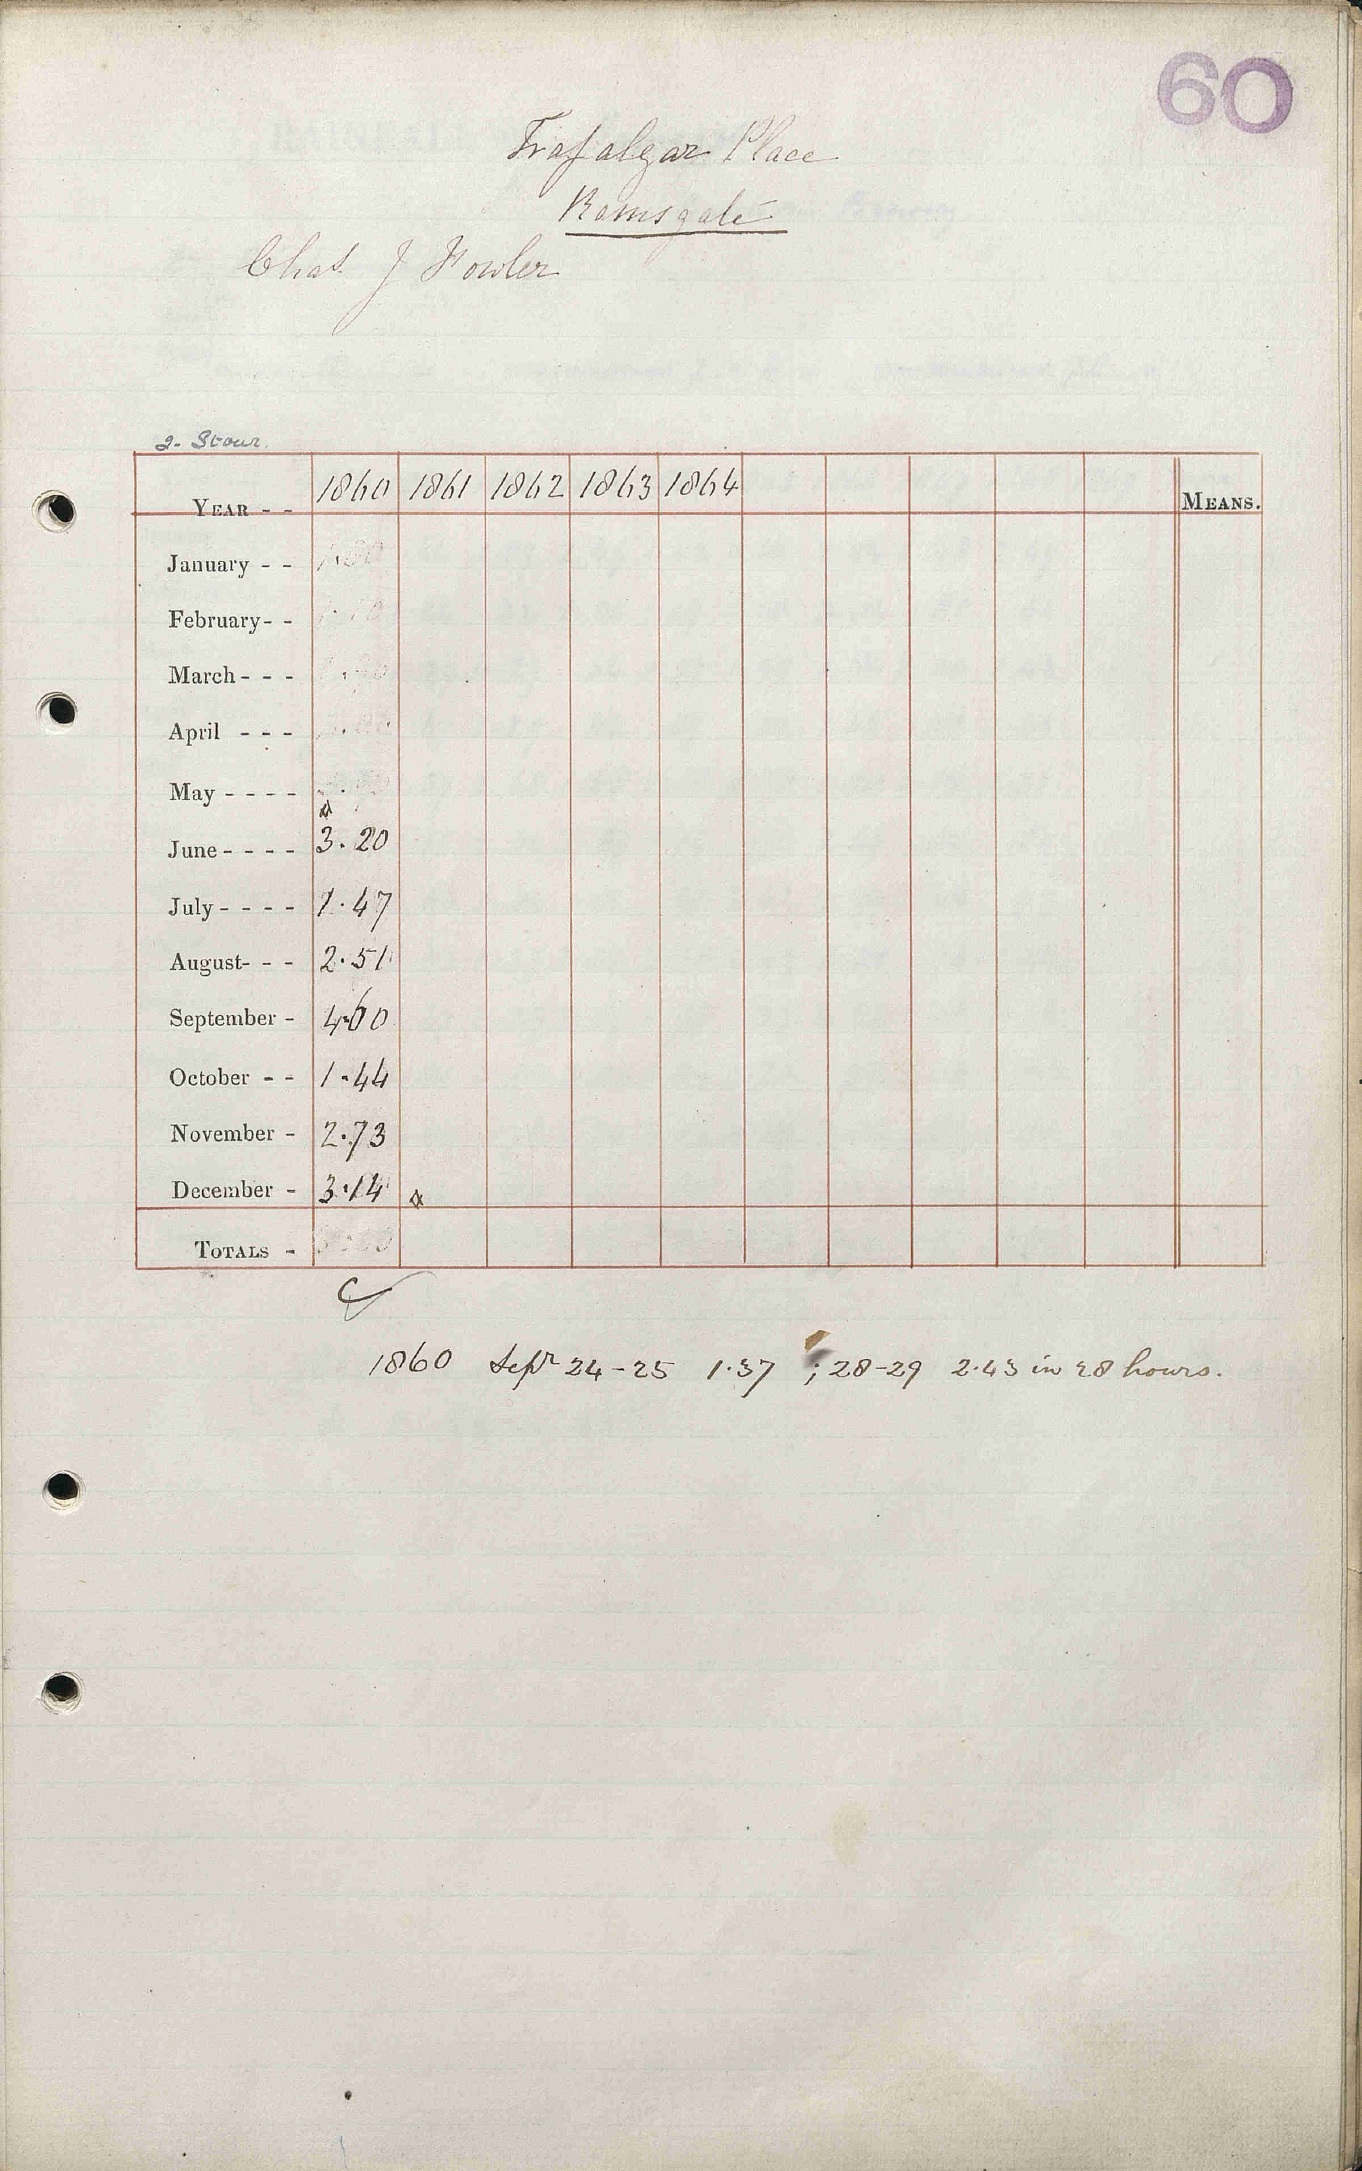 60
Trafalgar Place
Ramsgate
Chas. J Fowler
2. Stour.
YEAR - - 1860 1861 1862 1863 1864 MEANS.
January - -
February- -
March- - -
April - - -
May - - - -
June- - - - 3.20
July- - - - 1.47
August- - - 2.51
September - 4.60
October - - 1.44
November - 2.73
December - 3.14
TOTALS -
1860 Sepr 24-25 1.37 ; 28-29 2.43 in 28 hours.